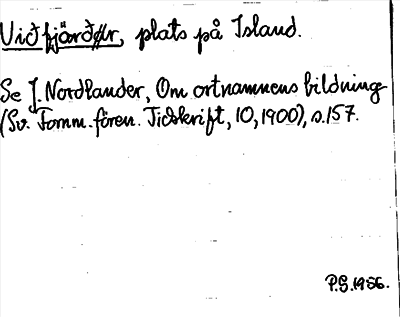 Viðfjärðør, plats på Island.
Se J. Nordlander, Om ortnamnens bildning
(Sv. Fornm.fören. Tidskrift, 10, 1900), s.157.
P.G. 1956.